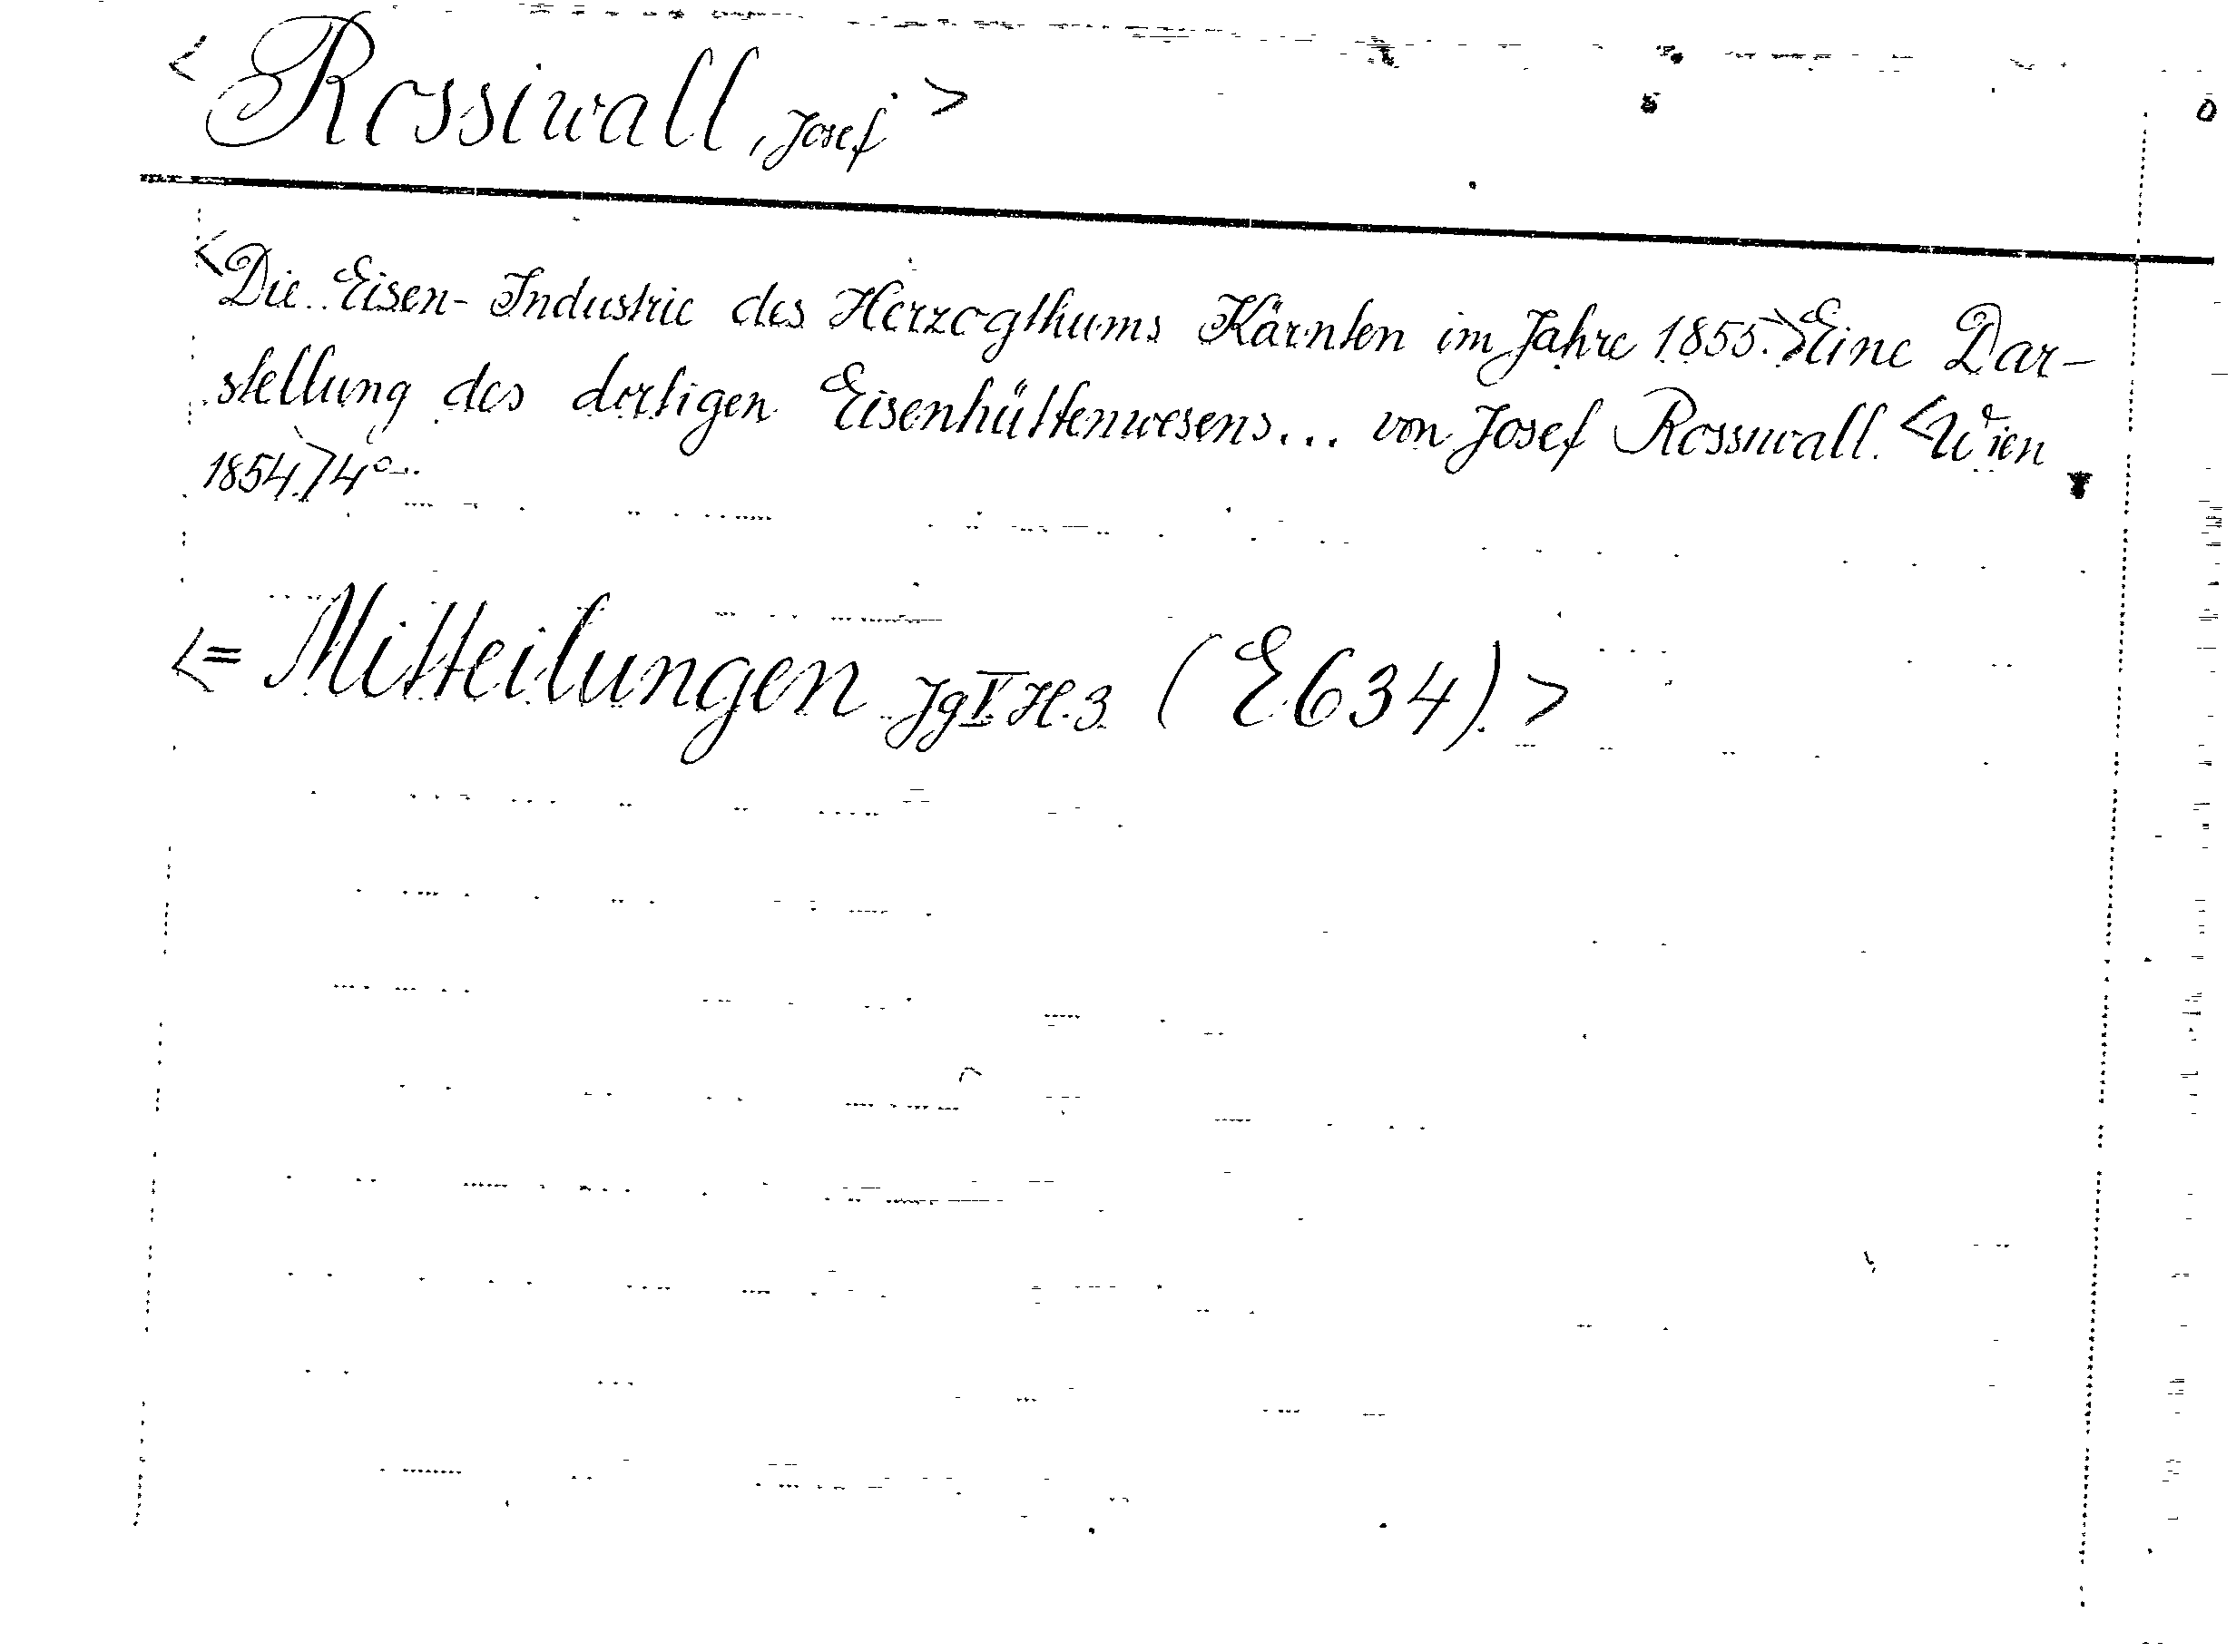 < Rossiwall, Josef >
<Die Eisen-Industrie des Herzogthums Kärnten im Jahre 1855.> Eine Dar-
stellung des dortigen Eisenhüttenwesens... von Josef Rossiwall. <Wien
1854.> 4°.
<= Mitteilungen Jg V H. 3 (E 634).>